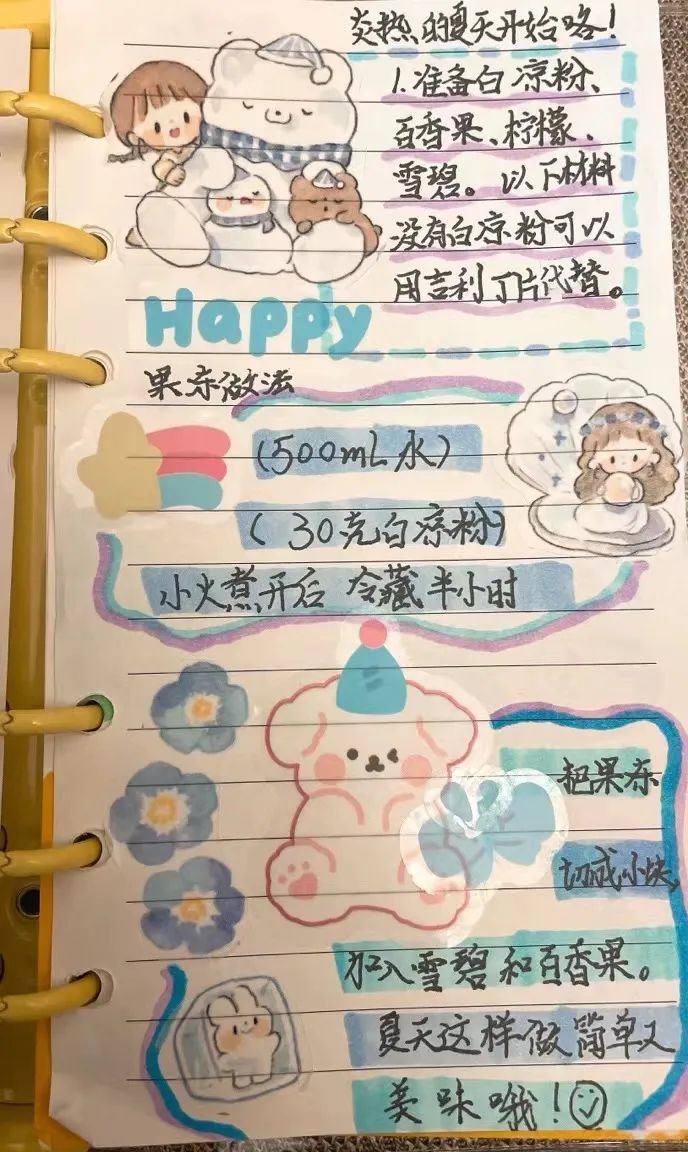 炎热的夏天开始咯！
1.准备白凉粉、
百香果、柠檬、
雪碧。以下材料
没有白凉粉可以
用吉利丁片代替。
Happy
果冻做法
(500mL水)
(30克白凉粉)
小火煮开后 冷藏半小时
把果冻
切成小块，
加入雪碧和百香果。
夏天这样做简单又
美味哦！